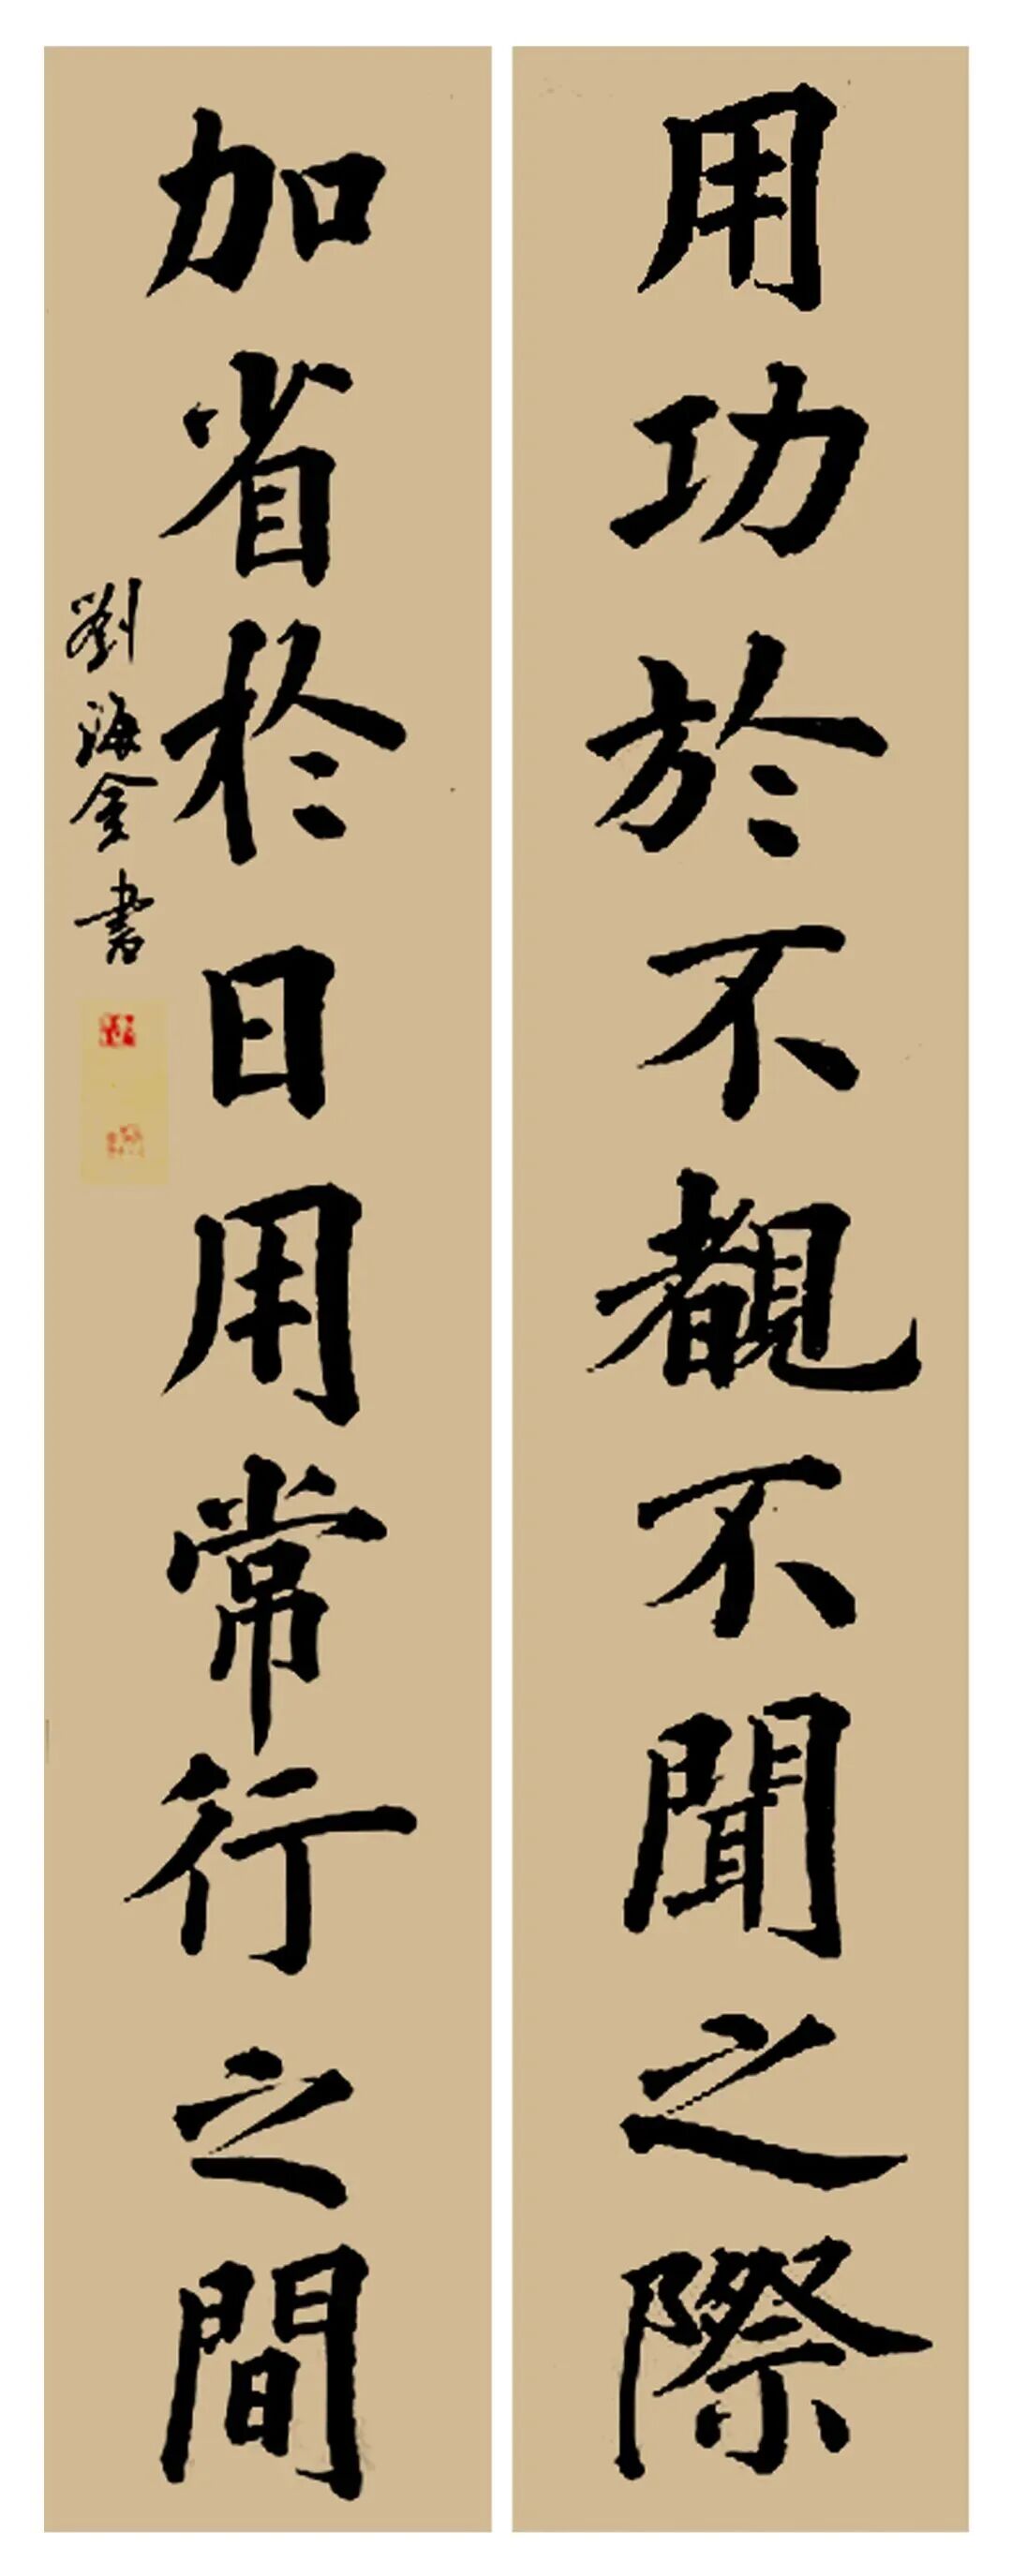 用功於不覩不聞之際
加省於日用常行之間
劉海金書